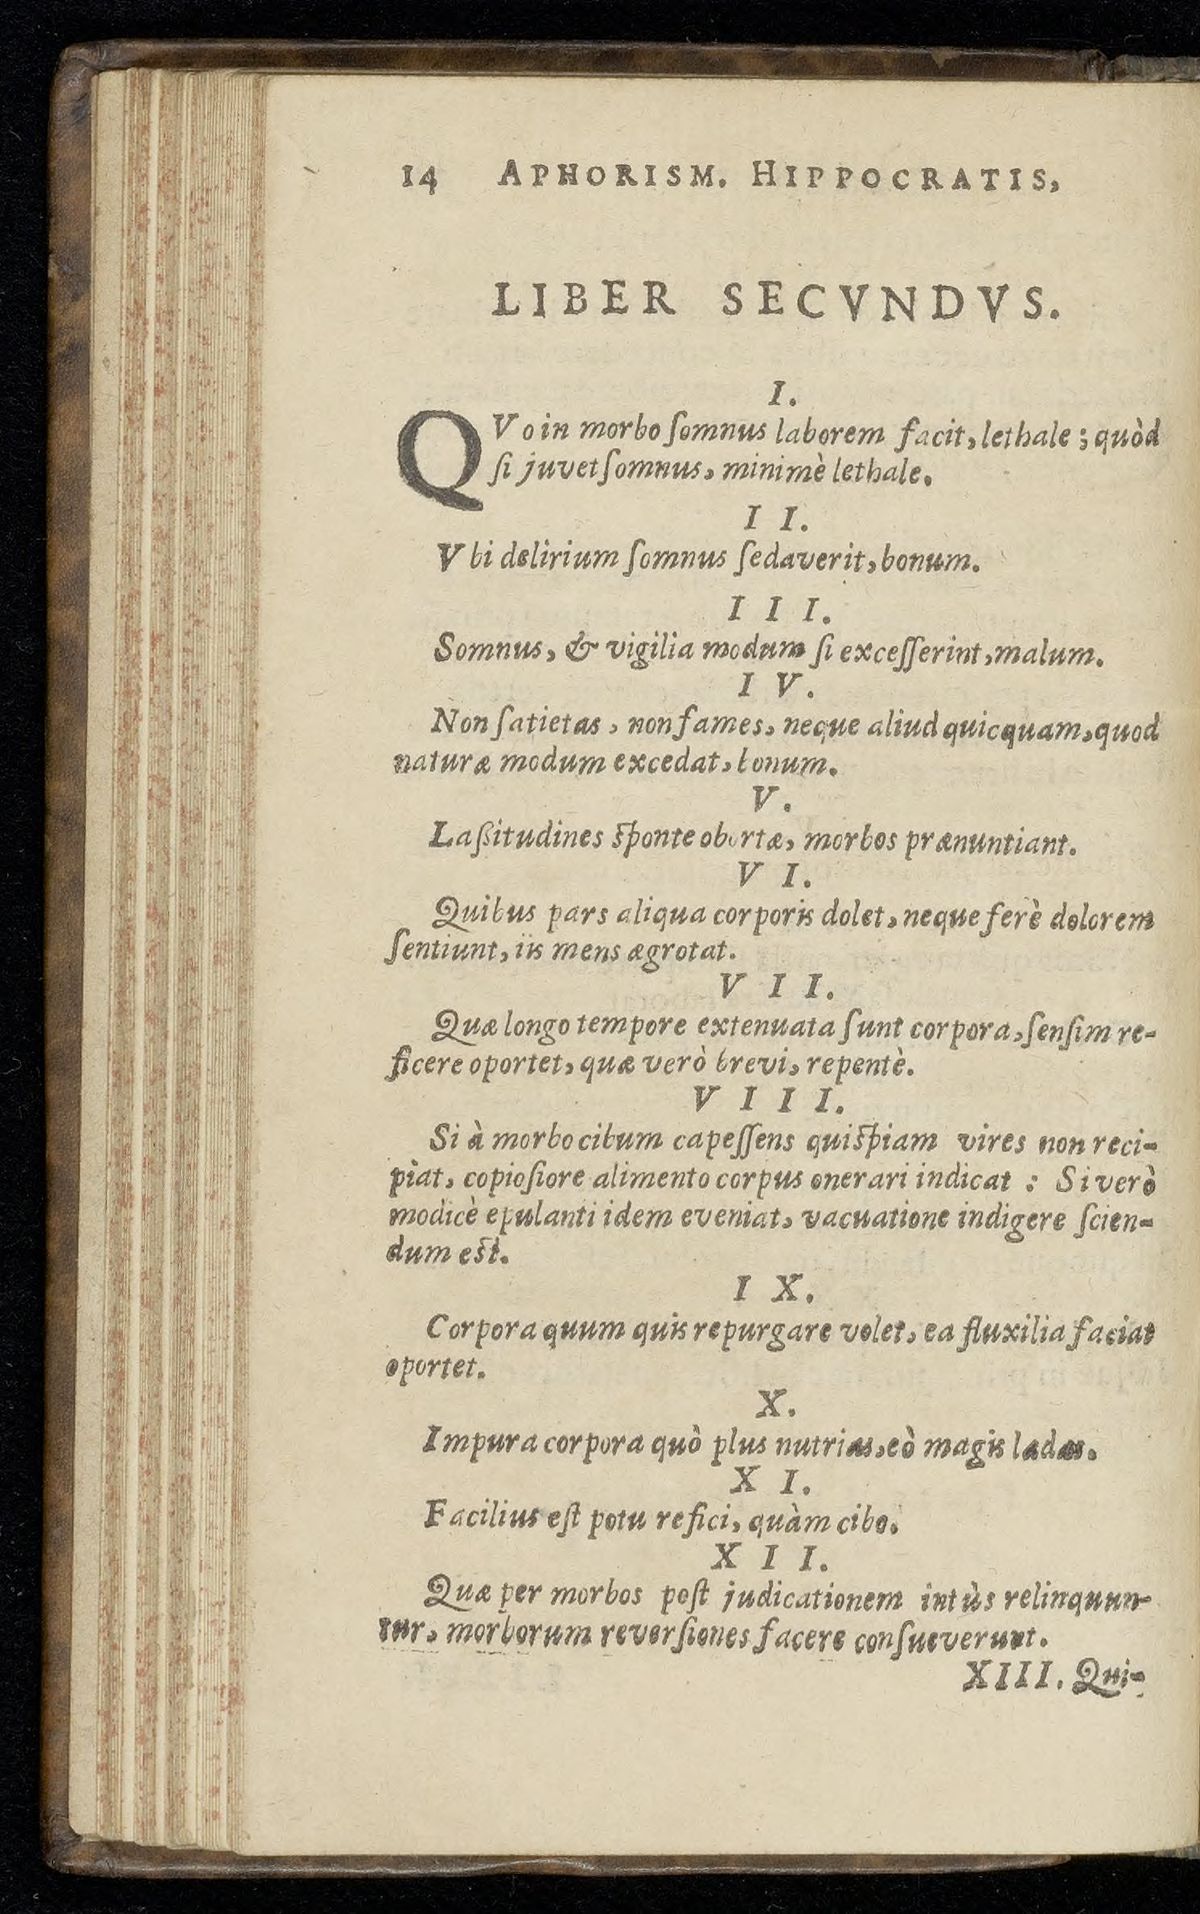 14 APHORISM. HIPPOCRATIS,
LIBER SECVNDVS.
I.
QVo in morbo ſomnus laborem facit, lethale; quòd
ſi juvet ſomnus, minimè lethale.
II.
Vbi delirium ſomnus ſedaverit, bonum.
III.
Somnus, & vigilia modum ſi exceſſerint, malum.
IV.
Non ſatietas, non fames, neque aliud quicquam, quod
naturæ modum excedat, bonum.
V.
Laßitudines ſponte obortæ, morbos prænuntiant.
VI.
Quibus pars aliqua corporis dolet, neque ferè dolorem
ſentiunt, iis mens ægrotat.
VII.
Quæ longo tempore extenuata ſunt corpora, ſenſim re-
ficere oportet, quæ verò brevi, repentè.
VIII.
Si à morbo cibum capeſſens quiſpiam vires non reci-
piat, copioſiore alimento corpus onerari indicat : Si verò
modicè epulanti idem eveniat, vacuatione indigere ſcien-
dum eſt.
IX.
Corpora quum quis repurgare volet, ea fluxilia faciat
oportet.
X.
Impura corpora quò plus nutrias, eò magis lædas.
XI.
Facilius eſt potu refici, quàm cibo.
XII.
Quæ per morbos poſt judicationem intùs relinquun-
tur, morborum reverſiones facere conſueverunt.
XIII. Qui-